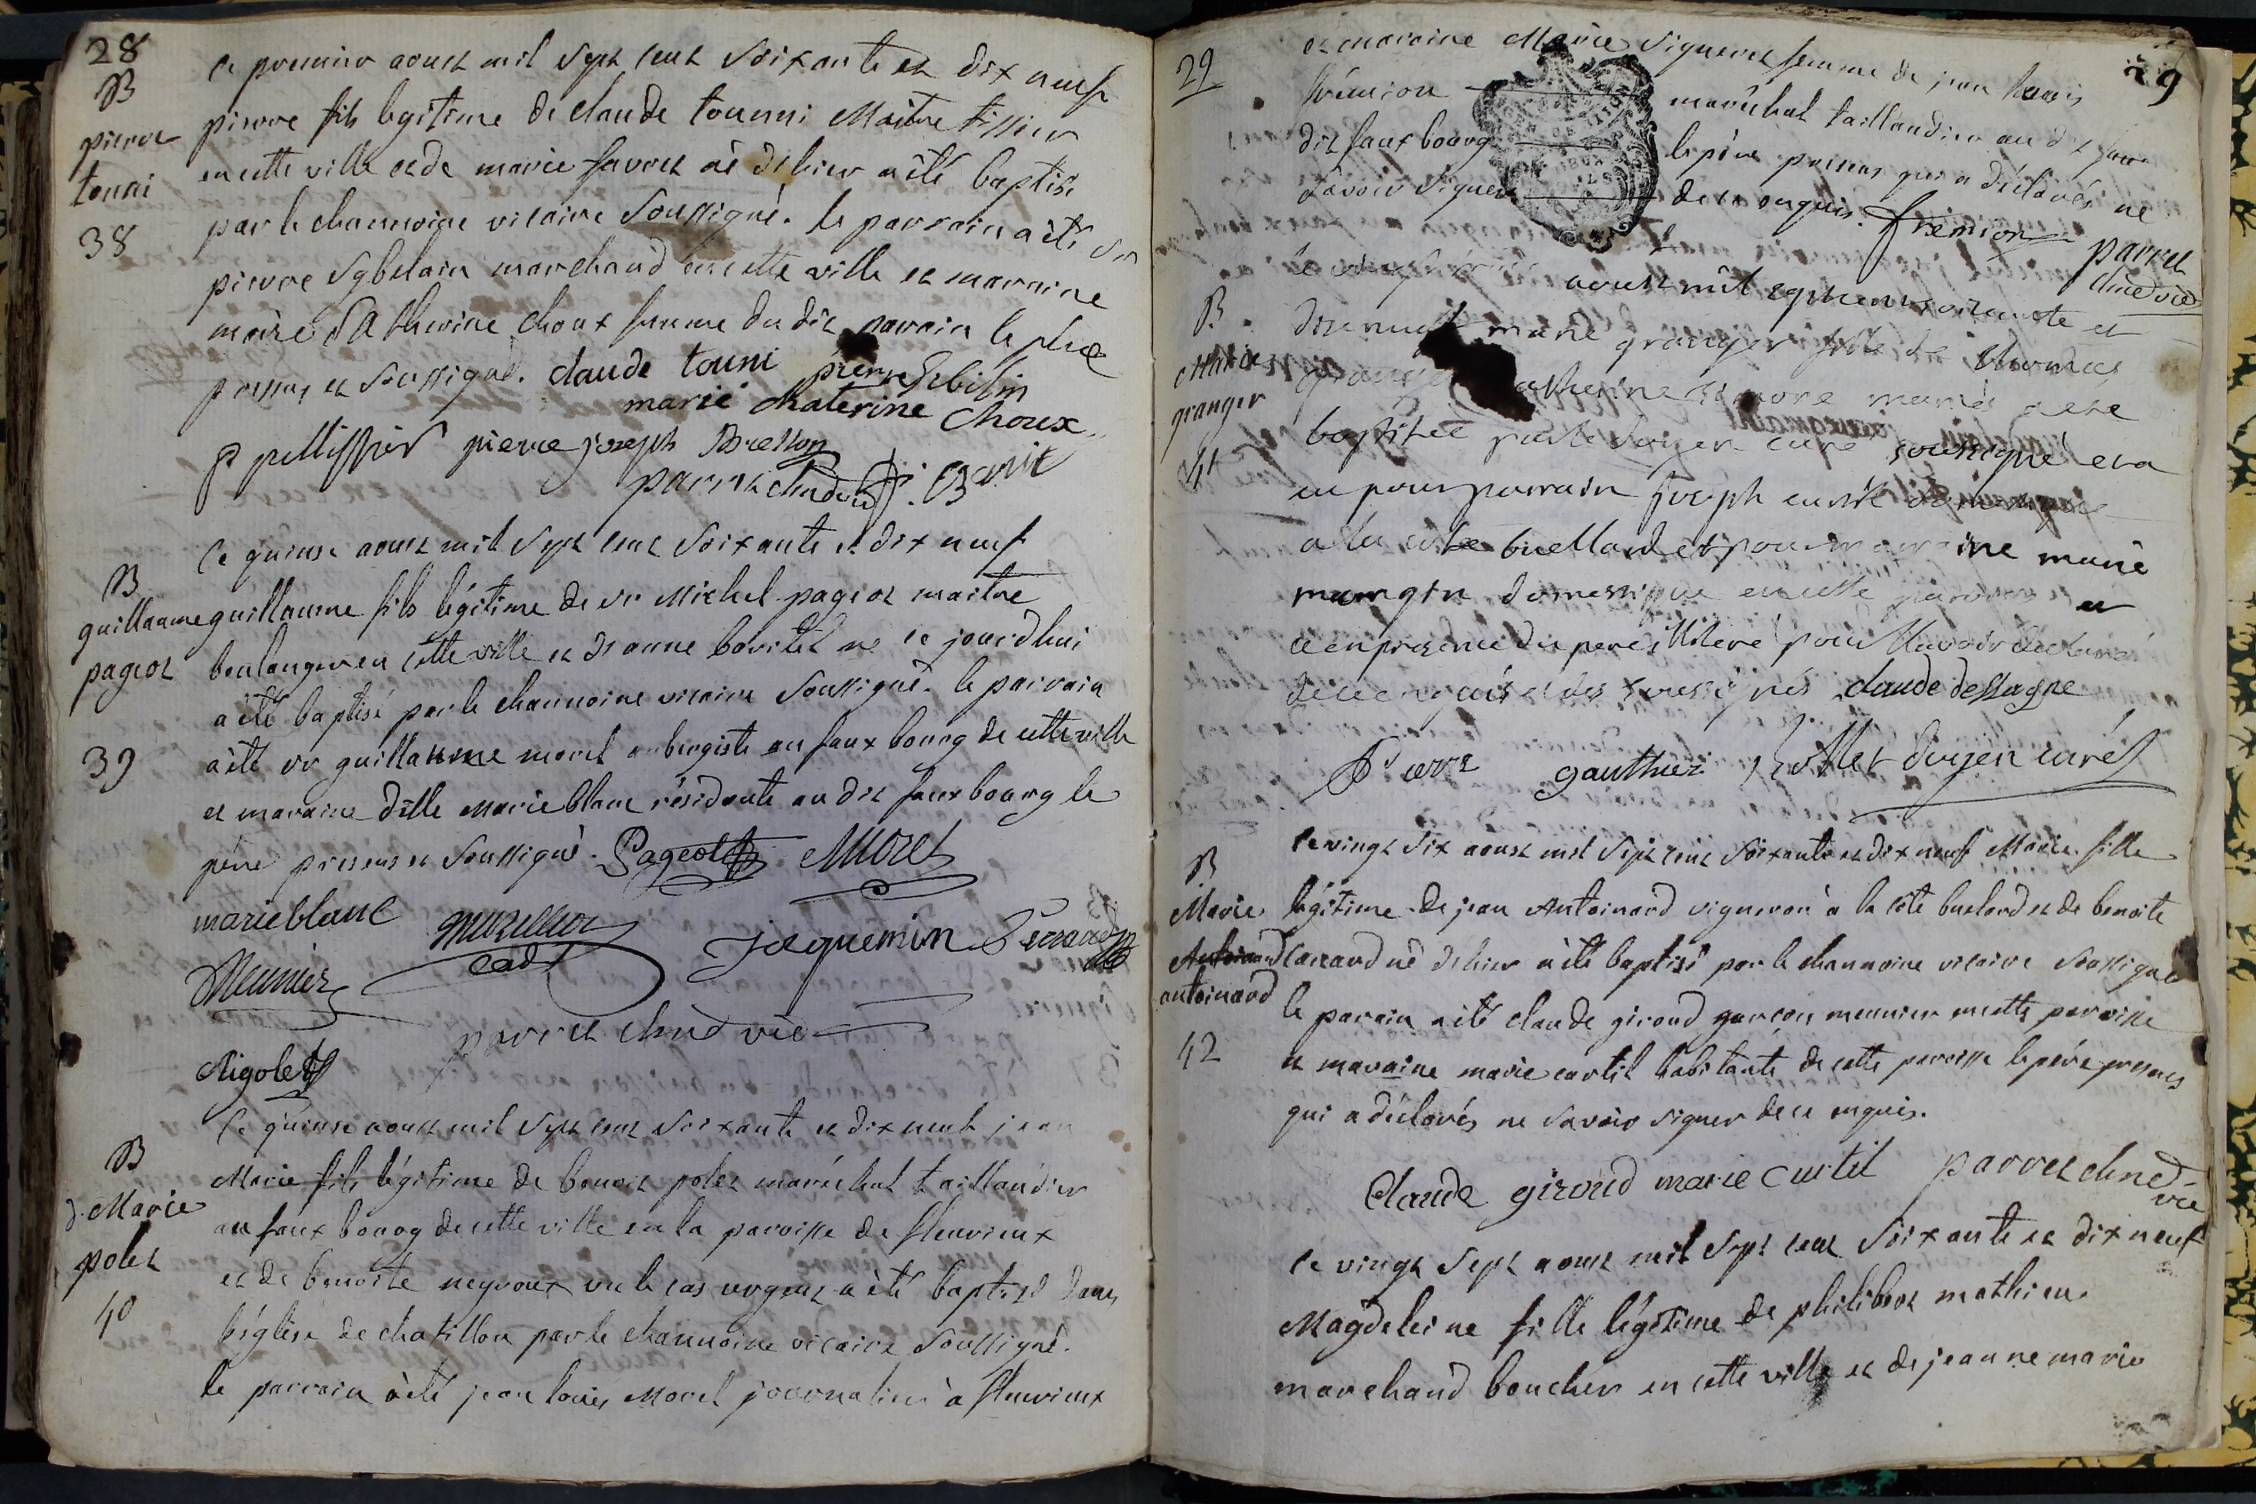 28
B
pierre
tonni
38
ce premier aoust mil sept cent soixante et dix neuf
pierre fils legitime de claude tounni Maitre tissier
en cette ville et de marie favret né d'hier a été baptisé
par le channoine vicaire soussigné. le parrain a été sr
pierre sybelain marchand en cette ville et marraine
marie Catherine choux femme du dit parain le père
present et soussigné. claude touni pierre Sibilin
marie chaterine choux
P pellissier pierre joseph Bresson
parret chne vic
B
guillaume
pageot
39
Ce quinse aoust mil sept cent soixante et dix neuf
guillaume fils légitime de sr Michel pageot maitre
boulanger en cette ville et d'anne né ce jourd'hui
a été baptisé par le channoine vicaire soussigné. le parrain
a été sr guillaume morel aubergiste au faux bourg de cette ville
et maraine dlle Marie blanc résidente au dit faux bourg le
père present et soussigné. Pageot Morel
marie blanc cadt jaquemin
Meunier
parret chne vic
Rigolet
B
j. Marie
polet
40
Ce quinse aoust mil sept cent soixante et dix neuf jean
Marie fils légitime de benoit polet maréchal taillandier
au faux bourg de cette ville en la paroisse de fleurieux
et de benoite neyroux vu le cas urgent a été baptisé dans
l'église de chatillon par le channoine vicaire soussigné.
le parrain a été jean louis Morel journalier à fleurieux
29
29
et maraine Marie signeret femme de jean louis
frémion maréchal taillandier au dit faux
dit faux bourg le père present qui a déclarés ne
savoir signer de ce enquis. fremion parret
chne vic
B
Marie
granger
41
le aoust mil sept cent soixante et
dix neuf marie granger fille de
granger catherine mariés a été
baptisée par le doyen curé soussigné et a
eu pour parrain joseph domestique
a la cote buellard et pour marraine marie
mangin domestique en cette paroisse et
ce en presence du pere illiteré pour l'avoir declaré
de ce enquis et des soussignés claude dessagne
Pierre gauthier doyen curé
B
Marie
Antoinard
antoinard
42
Ce vingt six aoust mil sept cent soixante et dix neuf Marie fille
légitime de jean Antoinard vigneron à la côte buelard et de benoite
carrard né d'hier a été baptisé par le channoine vicaire soussigné
le parain a été claude giroud garçon meunier en cette paroisse
et maraine marie curtil habitante de cette paroisse le père present
qui a déclarés ne savoir signer de ce enquis.
Claude giroud marie curtil parret chne
vic
Ce vingt sept aoust mil sept cent soixante et dix neuf
Magdeleine fille légitime de philibert mathieu
marchand boucher en cette ville et de jeanne marie